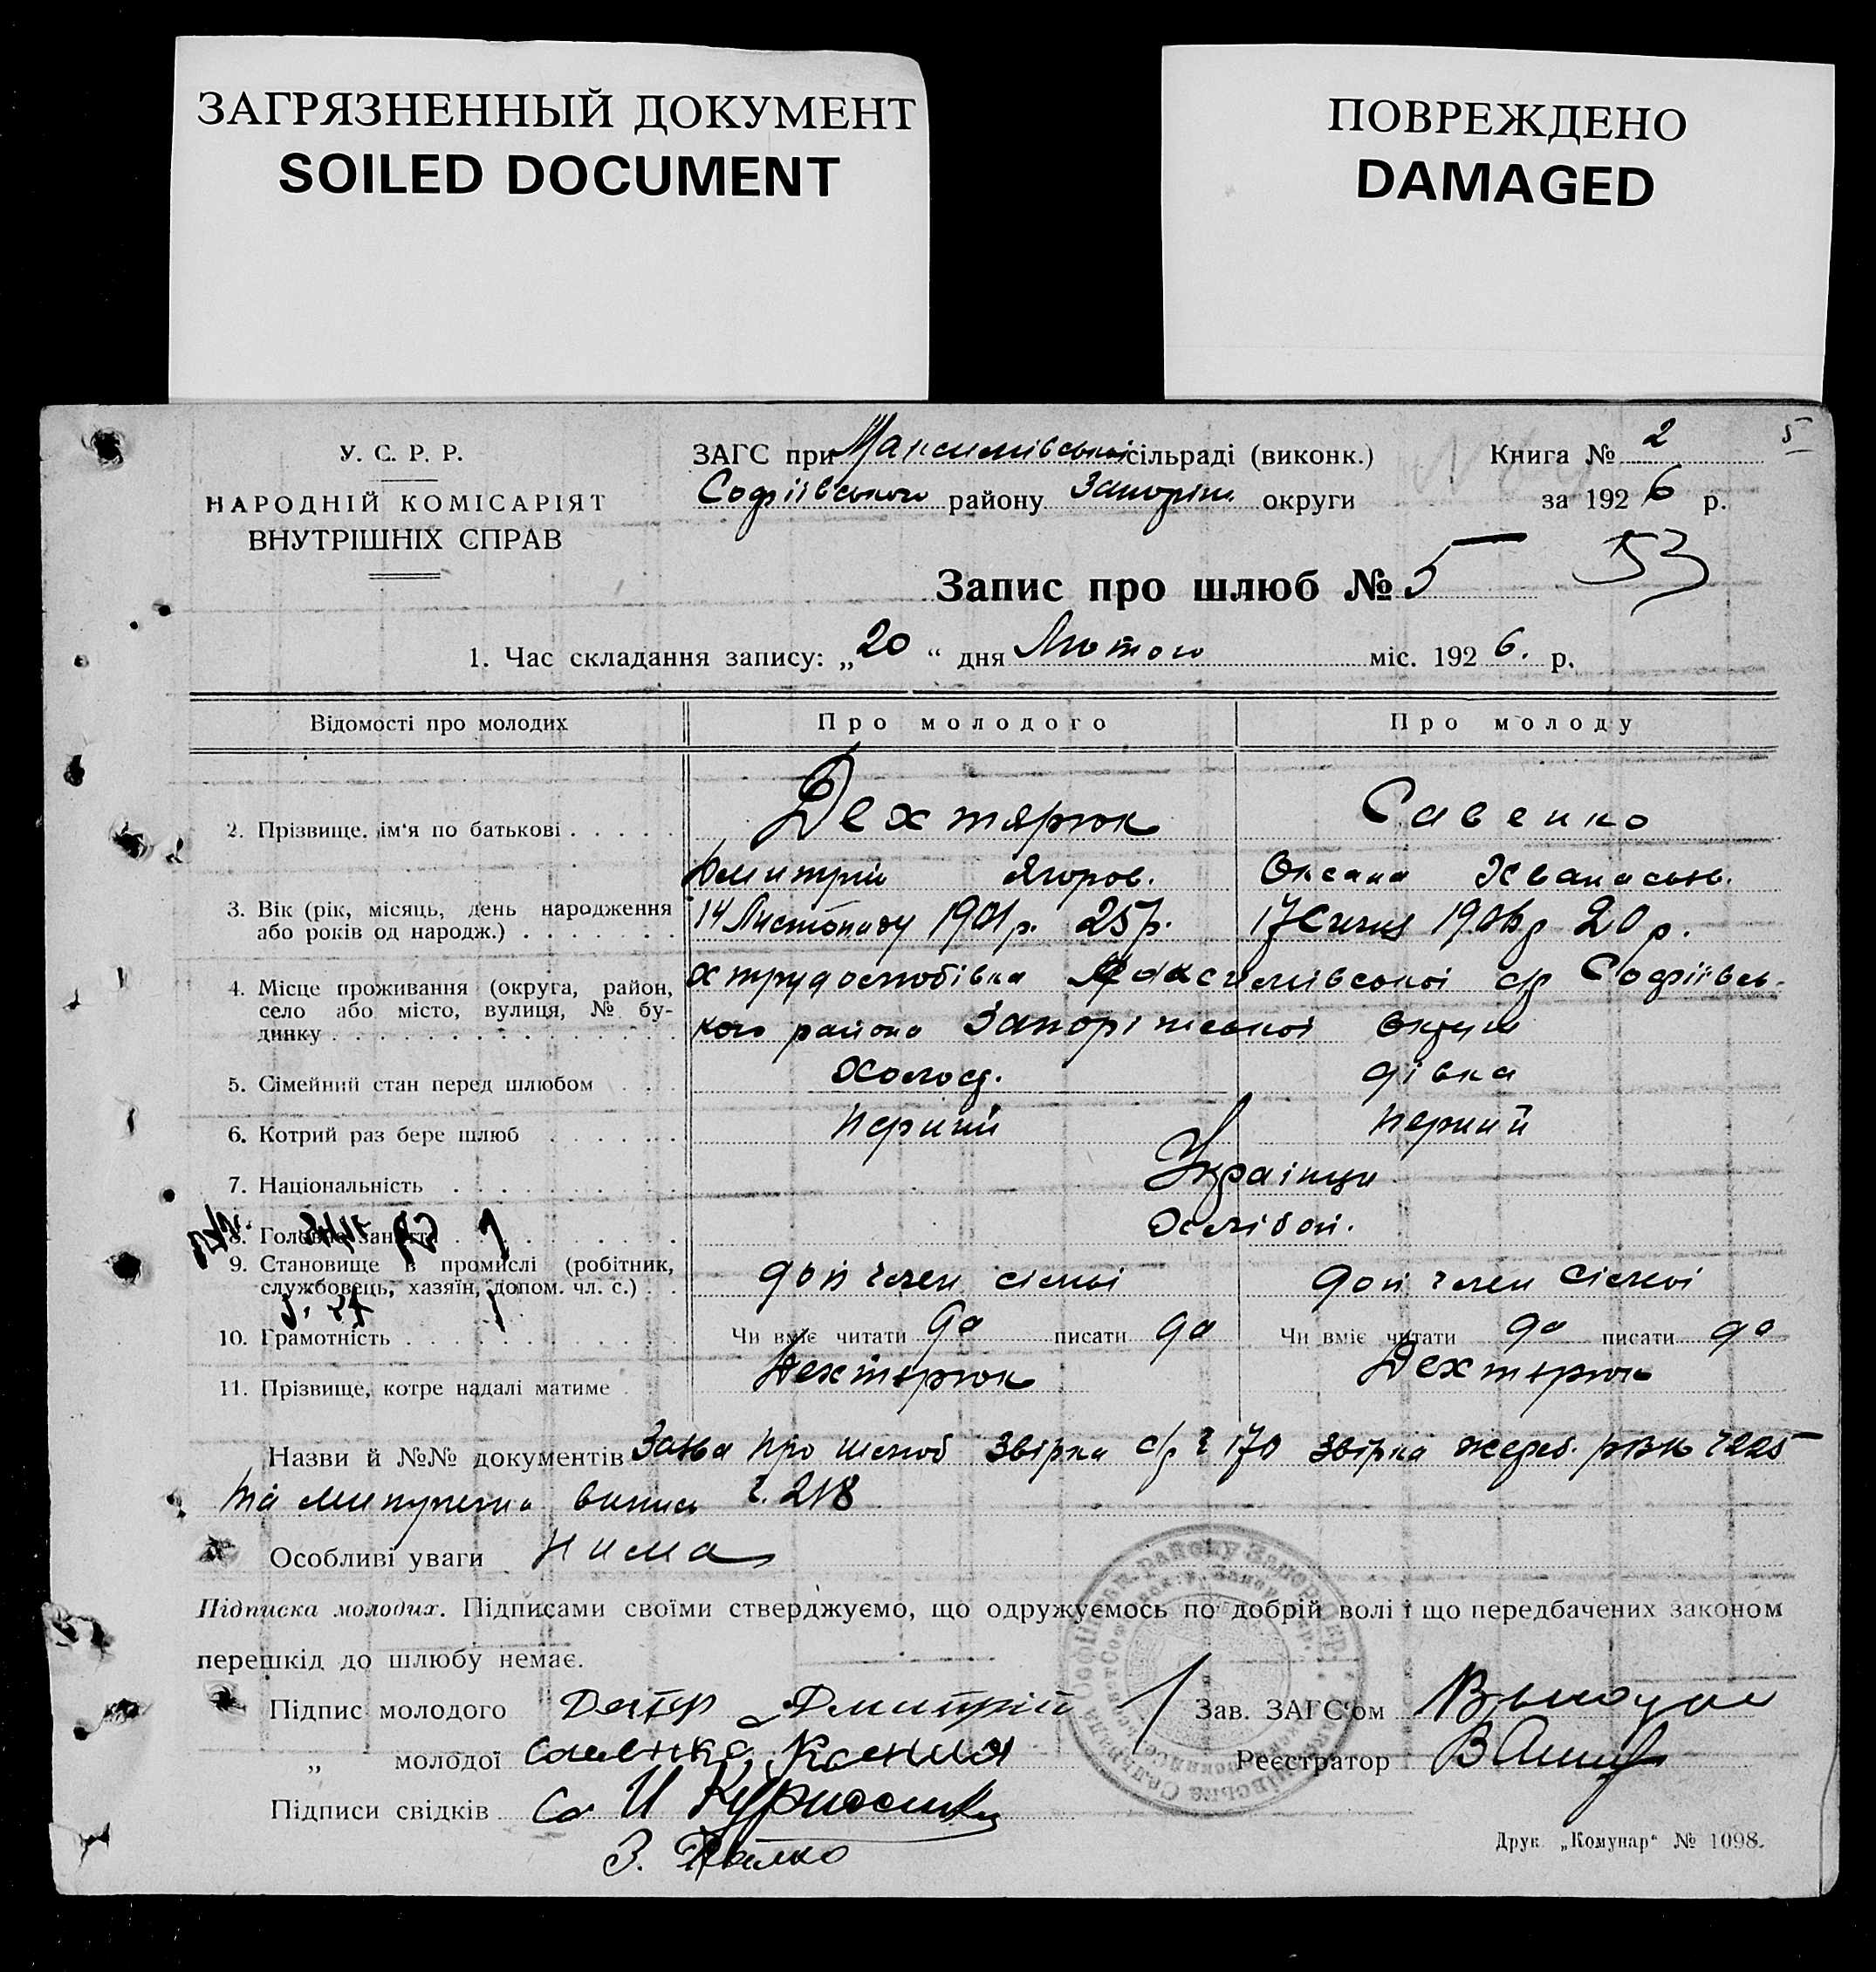 ЗАГРЯЗНЕННЫЙ ДОКУМЕНТ
SOILED DOCUMENT
ПОВРЕЖДЕНО
DAMAGED
У. С. Р. Р.
НАРОДНІЙ КОМІСАРІЯТ
ВНУТРІШНІХ СПРАВ
5
ЗАГС при Максимівській сільраді (виконк.) Книга № 2
Софіївського району Запоріж. округи за 1926 р.
53
Запис про шлюб № 5
1. Час складання запису: „20“ дня Лютого міс. 1926. р.
Відомості про молодих Про молодого Про молоду
2. Прізвище, ім'я по батькові . . . . . Дехтярюк Савенко
Дмитрій Ягоров. Оксана Хванасьів.
3. Вік (рік, місяць, день народження 14 Листопаду 1901 р. 25 р. 17 Січня 1906 р 20 р.
або років од народж.) . . . . . . .
4. Місце проживання (округа, район, х трудолюбівка Максимівської с/р Софіївсь-
село або місто, вулиця, № бу- кого района Запоріжської округи
динку . . . . . . . . . . . . . . .
5. Сімейний стан перед шлюбом . . . Холост. дівка
6. Котрий раз бере шлюб . . . . . . перший перший
7. Національність . . . . . . . . . Українци
8. Головне заняття . . . . . . . . Хлібоп.
9. Становище в промислі (робітник, доп член сімьі доп член сімьі
службовець, хазяїн, допом. чл. с.) . .
10. Грамотність . . . . . . . . . . . Чи вміє читати да писати да Чи вміє читати да писати да
11. Прізвище, котре надалі матиме . Дехтярюк Дехтярюк
Назви й №№ документів Заява про шлюб звірка с/р ч 170 звірка жереб. РВК ч 225
та випись ч. 218
Особливі уваги нима
Підписка молодих. Підписами своїми стверджуємо, що одружуємось по добрій волі і що передбачених законом
перешкід до шлюбу немає.
Підпис молодого Дехтр Дмитрій Зав. ЗАГС'ом
„ молодої Савенко Ксения Реєстратор
Підписи свідків
З.
Друк „Комунар“ № 1098.